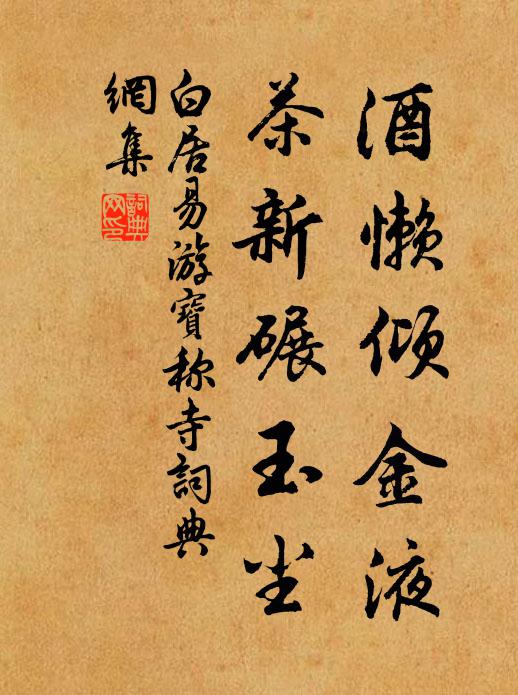 酒懒倾金液
茶新碾玉尘
白居易游寶称寺詞典
網集
詞典
网印